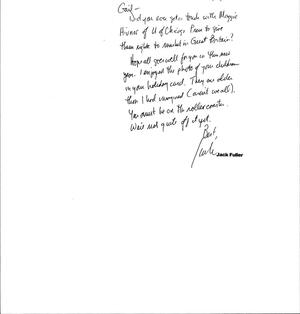 Gail —
Did you ever get in touch with Maggie
Hivnor of U of Chicago Press to give
them rights to market in Great Britain?
Hope all goes well for you in the new
year. I enjoyed the photo of your children
in your holiday card. They are older
than I had imagined (aren't we all).
You must be on the rollercoaster.
We're not quite off it yet.
Best,
Jack
Jack Fuller